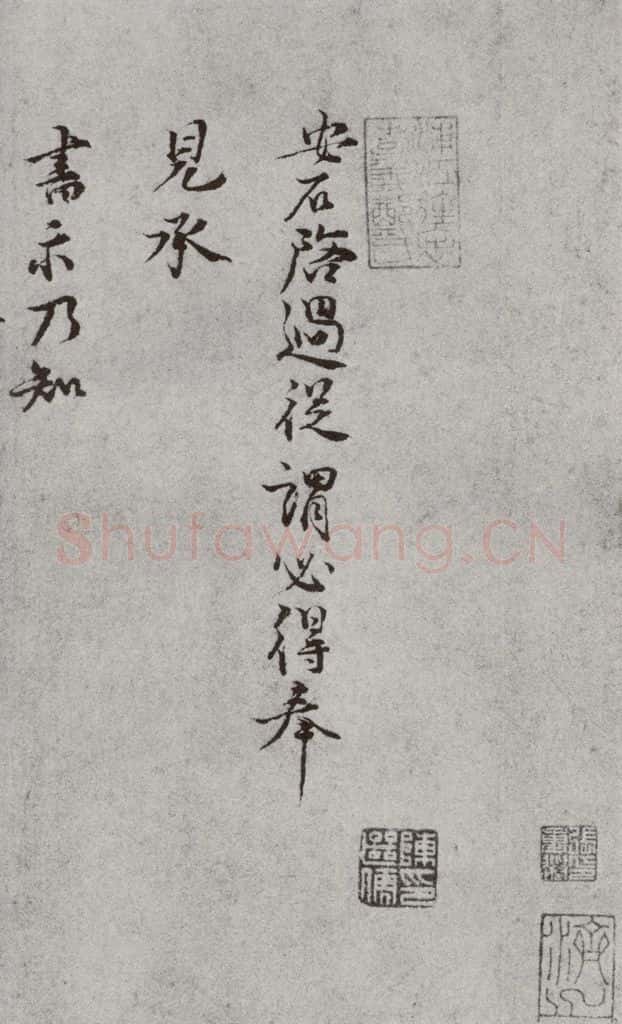 安石啓過從謂必得奉
見承
書示乃知
Shufawang.CN